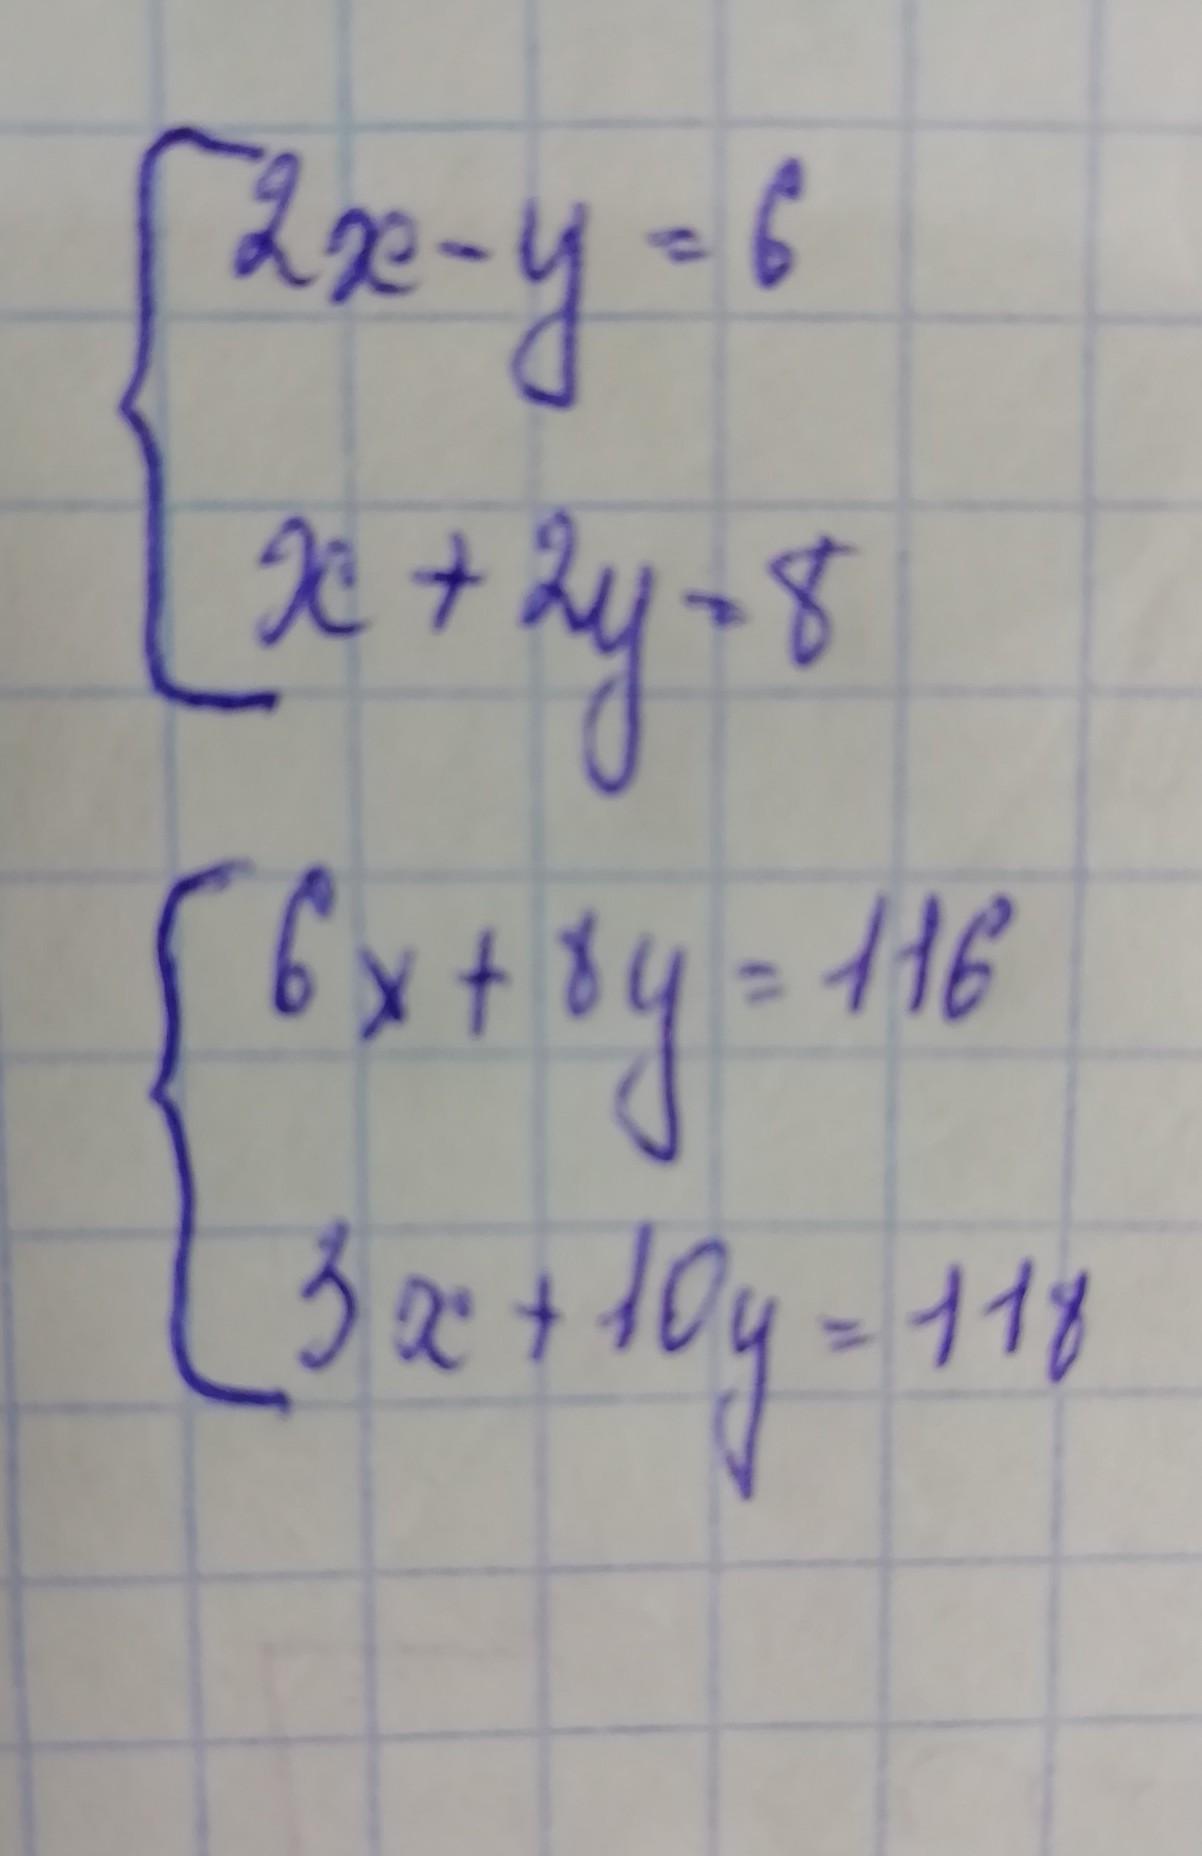 2x - y = 6
x + 2y = 8
6x + 8y = 116
3x + 10y = 118